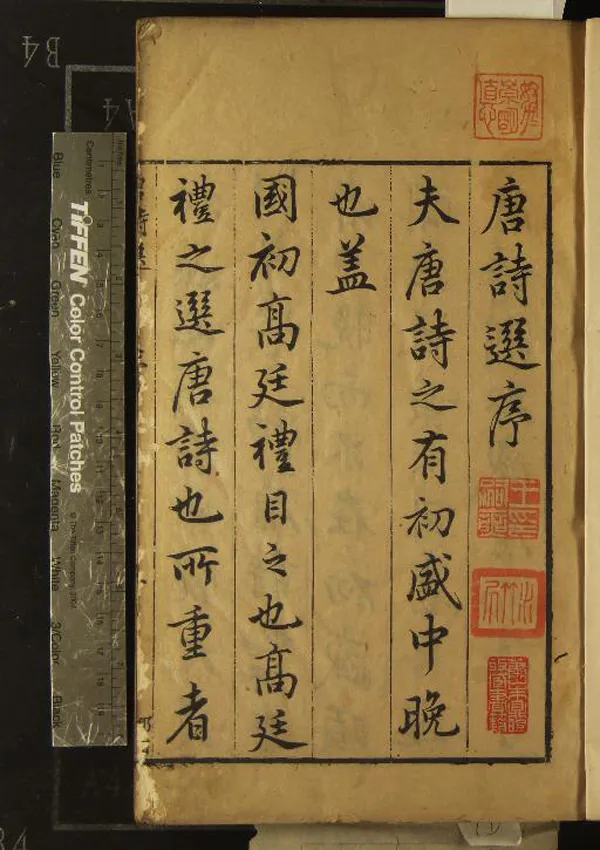 唐詩選序
夫唐詩之有初盛中晚
也蓋
國初高廷禮目之也高廷
禮之選唐詩也所重者
TIFFEN Color Control Patches
© The Tiffen Company, 2004
Centimetres
Blue
Cyan
Green
Yellow
Red
Magenta
White
3/Color
Black
B4
A4